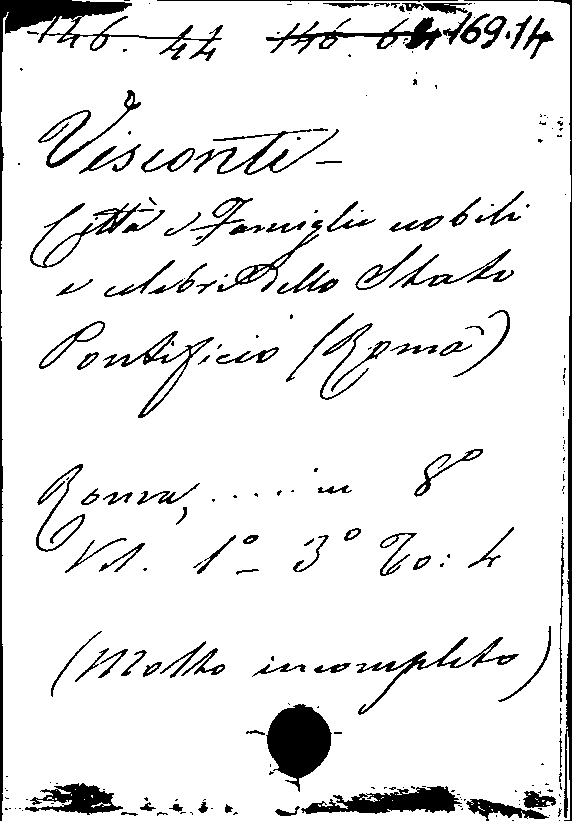 146. 44 146. 64 169.14
Visconti -
Città e Famiglie nobili
e celebri dello Stato
Pontificio (Roma)
Roma, ..... in 8º
Vol. 1º - 3º To: 4
(Molto incompleto)